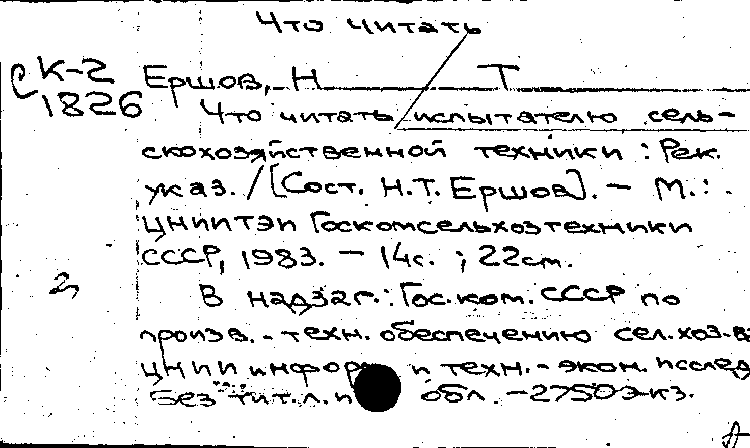 Что читать
К-2 Ершов, Н Т
1826 Что читать испытателю сель-
скохозяйственной техники : Рек.
указ. / [Сост. Н.Т. Ершов]. — М. :
ЦНИИТЭИ Госкомсельхозтехники
СССР, 1983. — 14с. ; 22см.
В надзаг.: Гос. ком. СССР по
произв.-техн. обеспечению сел. хоз-ва
ЦНИИ информ и техн.-экон. исслед
Без тит. л. и обл. — 2750 экз.